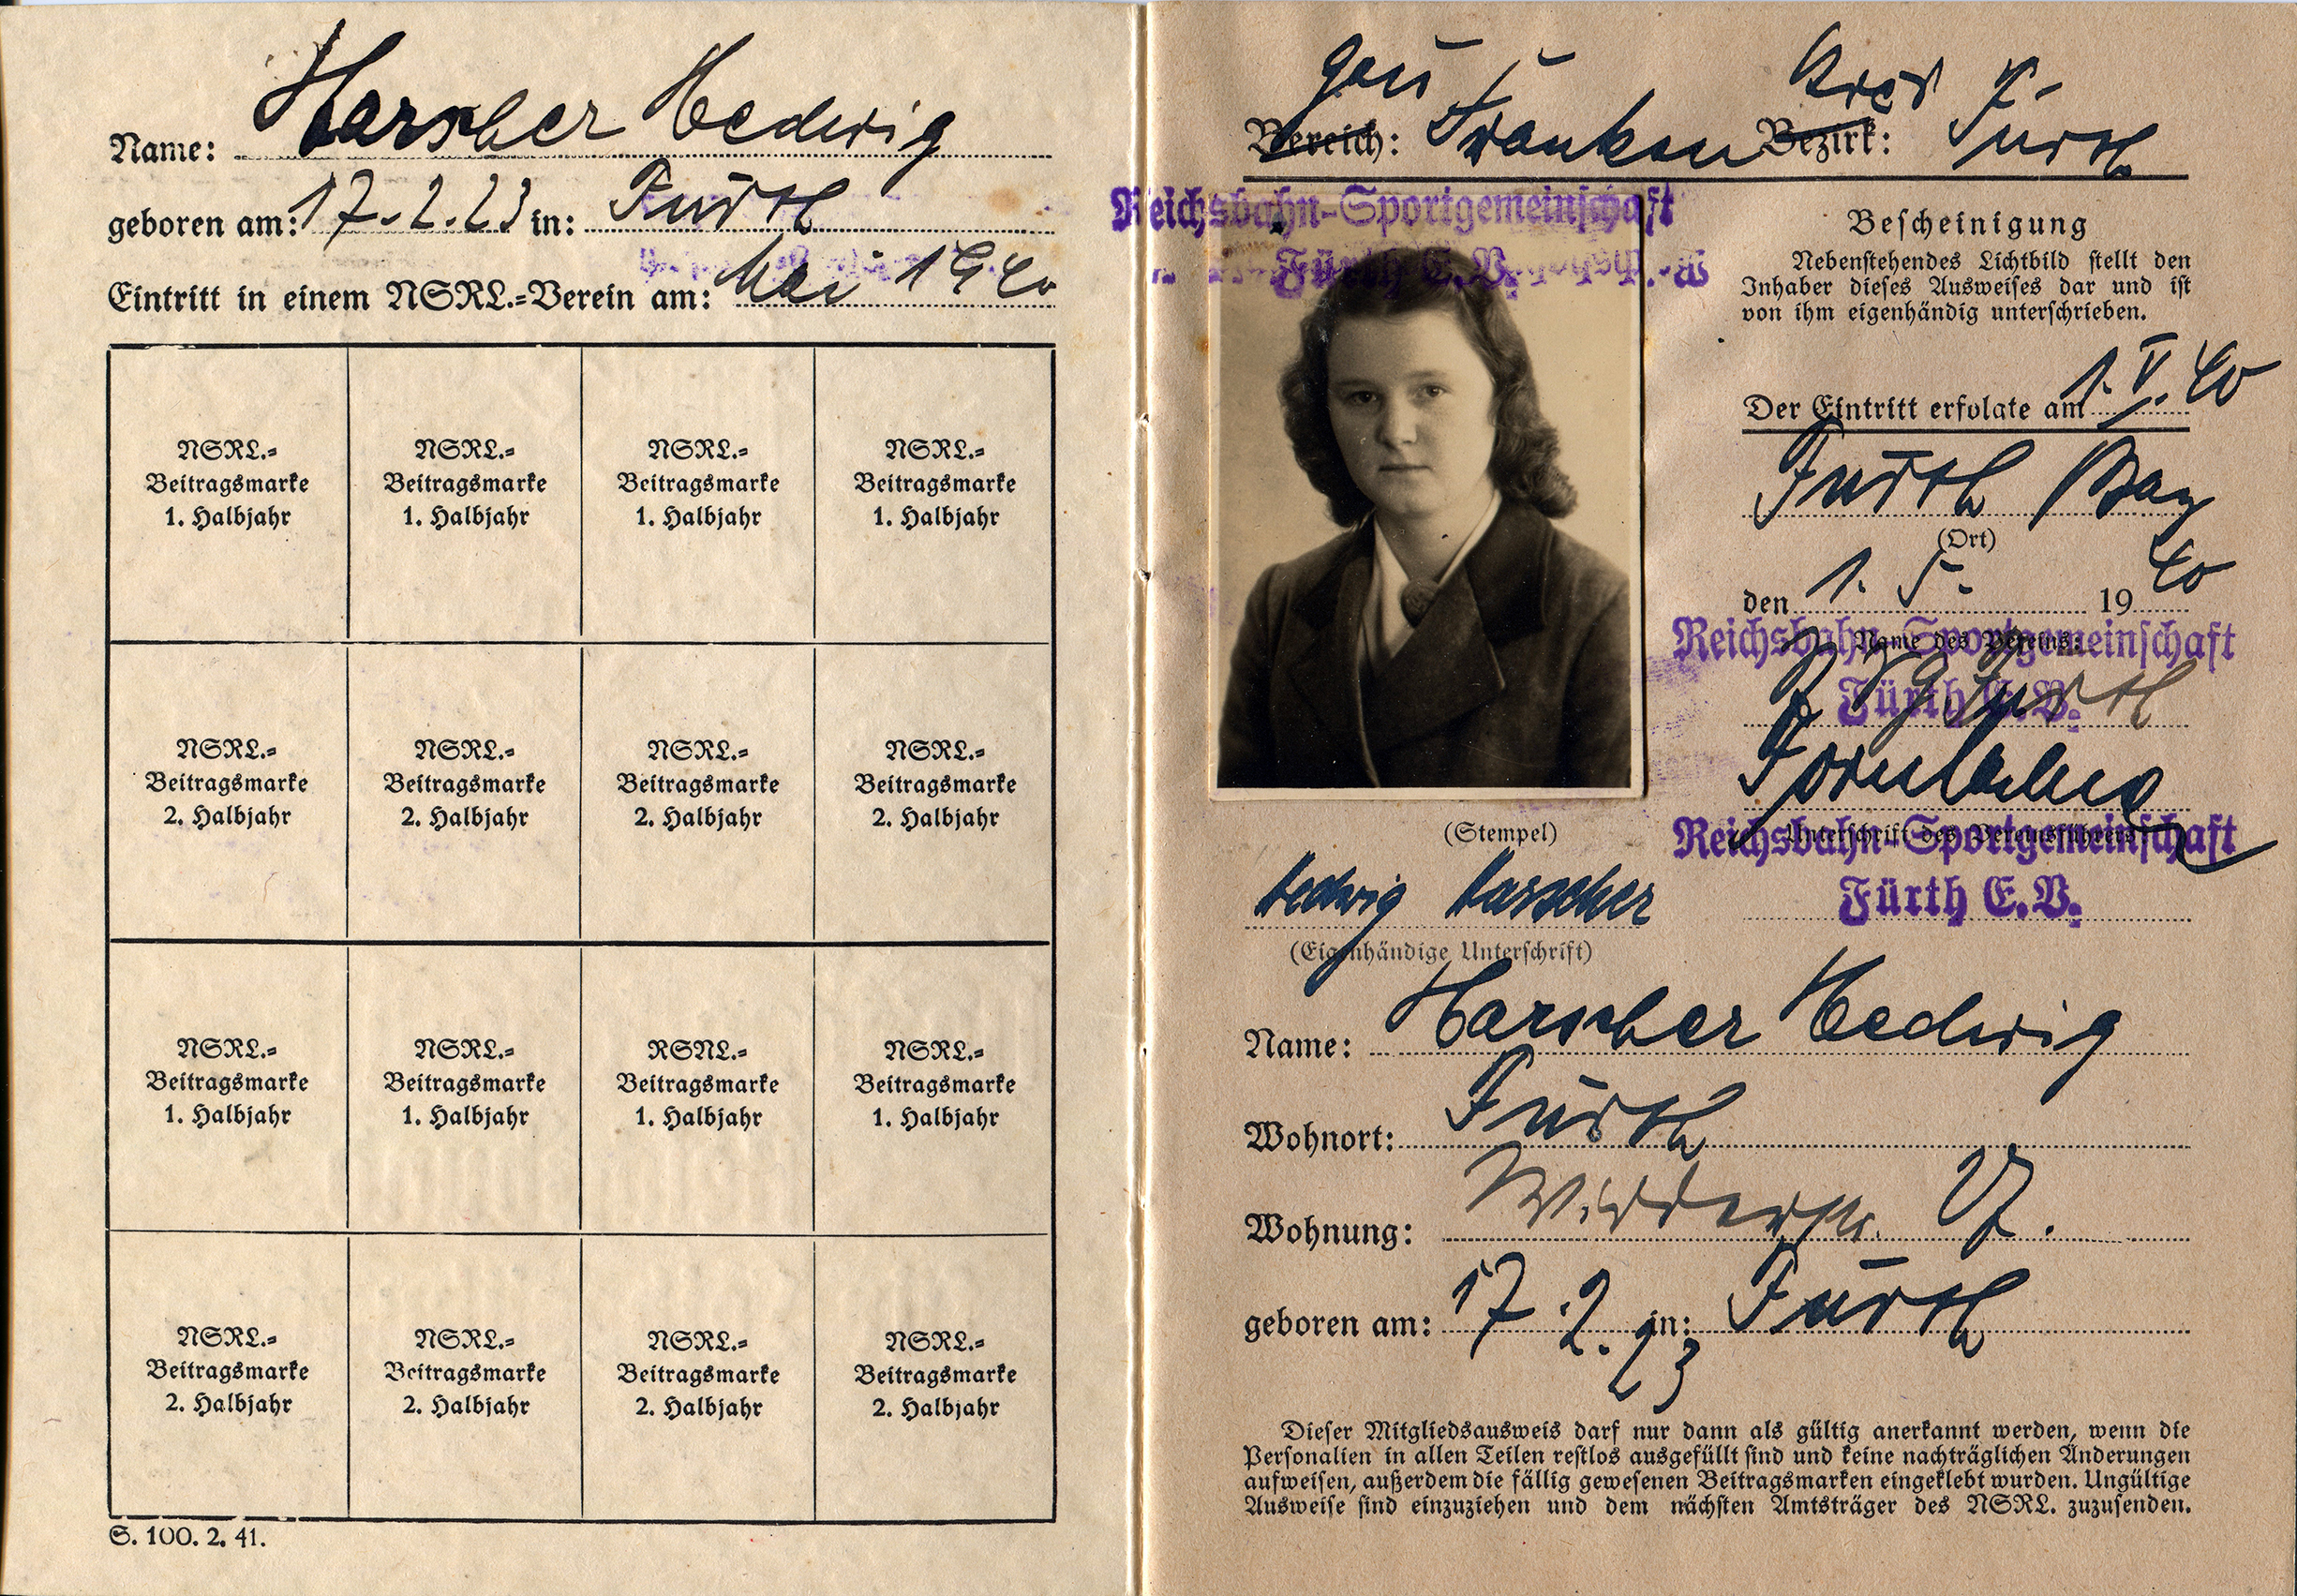 Name: Harscher Hedwig
geboren am: 17.2.23 in: Fürth
Eintritt in einem NSRL.=Verein am: Mai 1940
NSRL.= NSRL.= NSRL.= NSRL.=
Beitragsmarke Beitragsmarke Beitragsmarke Beitragsmarke
1. Halbjahr 1. Halbjahr 1. Halbjahr 1. Halbjahr
NSRL.= NSRL.= NSRL.= NSRL.=
Beitragsmarke Beitragsmarke Beitragsmarke Beitragsmarke
2. Halbjahr 2. Halbjahr 2. Halbjahr 2. Halbjahr
NSRL.= NSRL.= RSNL.= NSRL.=
Beitragsmarke Beitragsmarke Beitragsmarke Beitragsmarke
1. Halbjahr 1. Halbjahr 1. Halbjahr 1. Halbjahr
NSRL.= NSRL.= NSRL.= NSRL.=
Beitragsmarke Beitragsmarke Beitragsmarke Beitragsmarke
2. Halbjahr 2. Halbjahr 2. Halbjahr 2. Halbjahr
S. 100. 2. 41.
Gau Kreis
Bereich: Franken Bezirk: Fürth
Reichsbahn-Sportgemeinschaft
Fürth E.V.
Bescheinigung
Nebenstehendes Lichtbild stellt den
Inhaber dieses Ausweises dar und ist
von ihm eigenhändig unterschrieben.
Der Eintritt erfolgte am 1.V.40
Fürth Bay
(Ort)
den 1. 5. 1940
Name des Vereins:
Reichsbahn-Sportgemeinschaft
Fürth E.V.
Fürth
(Stempel)
Unterschrift des Vereinsführers
Reichsbahn-Sportgemeinschaft
Fürth E.V.
Hedwig Harscher
(Eigenhändige Unterschrift)
Name: Harscher Hedwig
Wohnort: Fürth
Wohnung:
geboren am: 17.2.23 in: Fürth
Dieser Mitgliedsausweis darf nur dann als gültig anerkannt werden, wenn die
Personalien in allen Teilen restlos ausgefüllt sind und keine nachträglichen Änderungen
aufweisen, außerdem die fällig gewesenen Beitragsmarken eingeklebt wurden. Ungültige
Ausweise sind einzuziehen und dem nächsten Amtsträger des NSRL. zuzusenden.